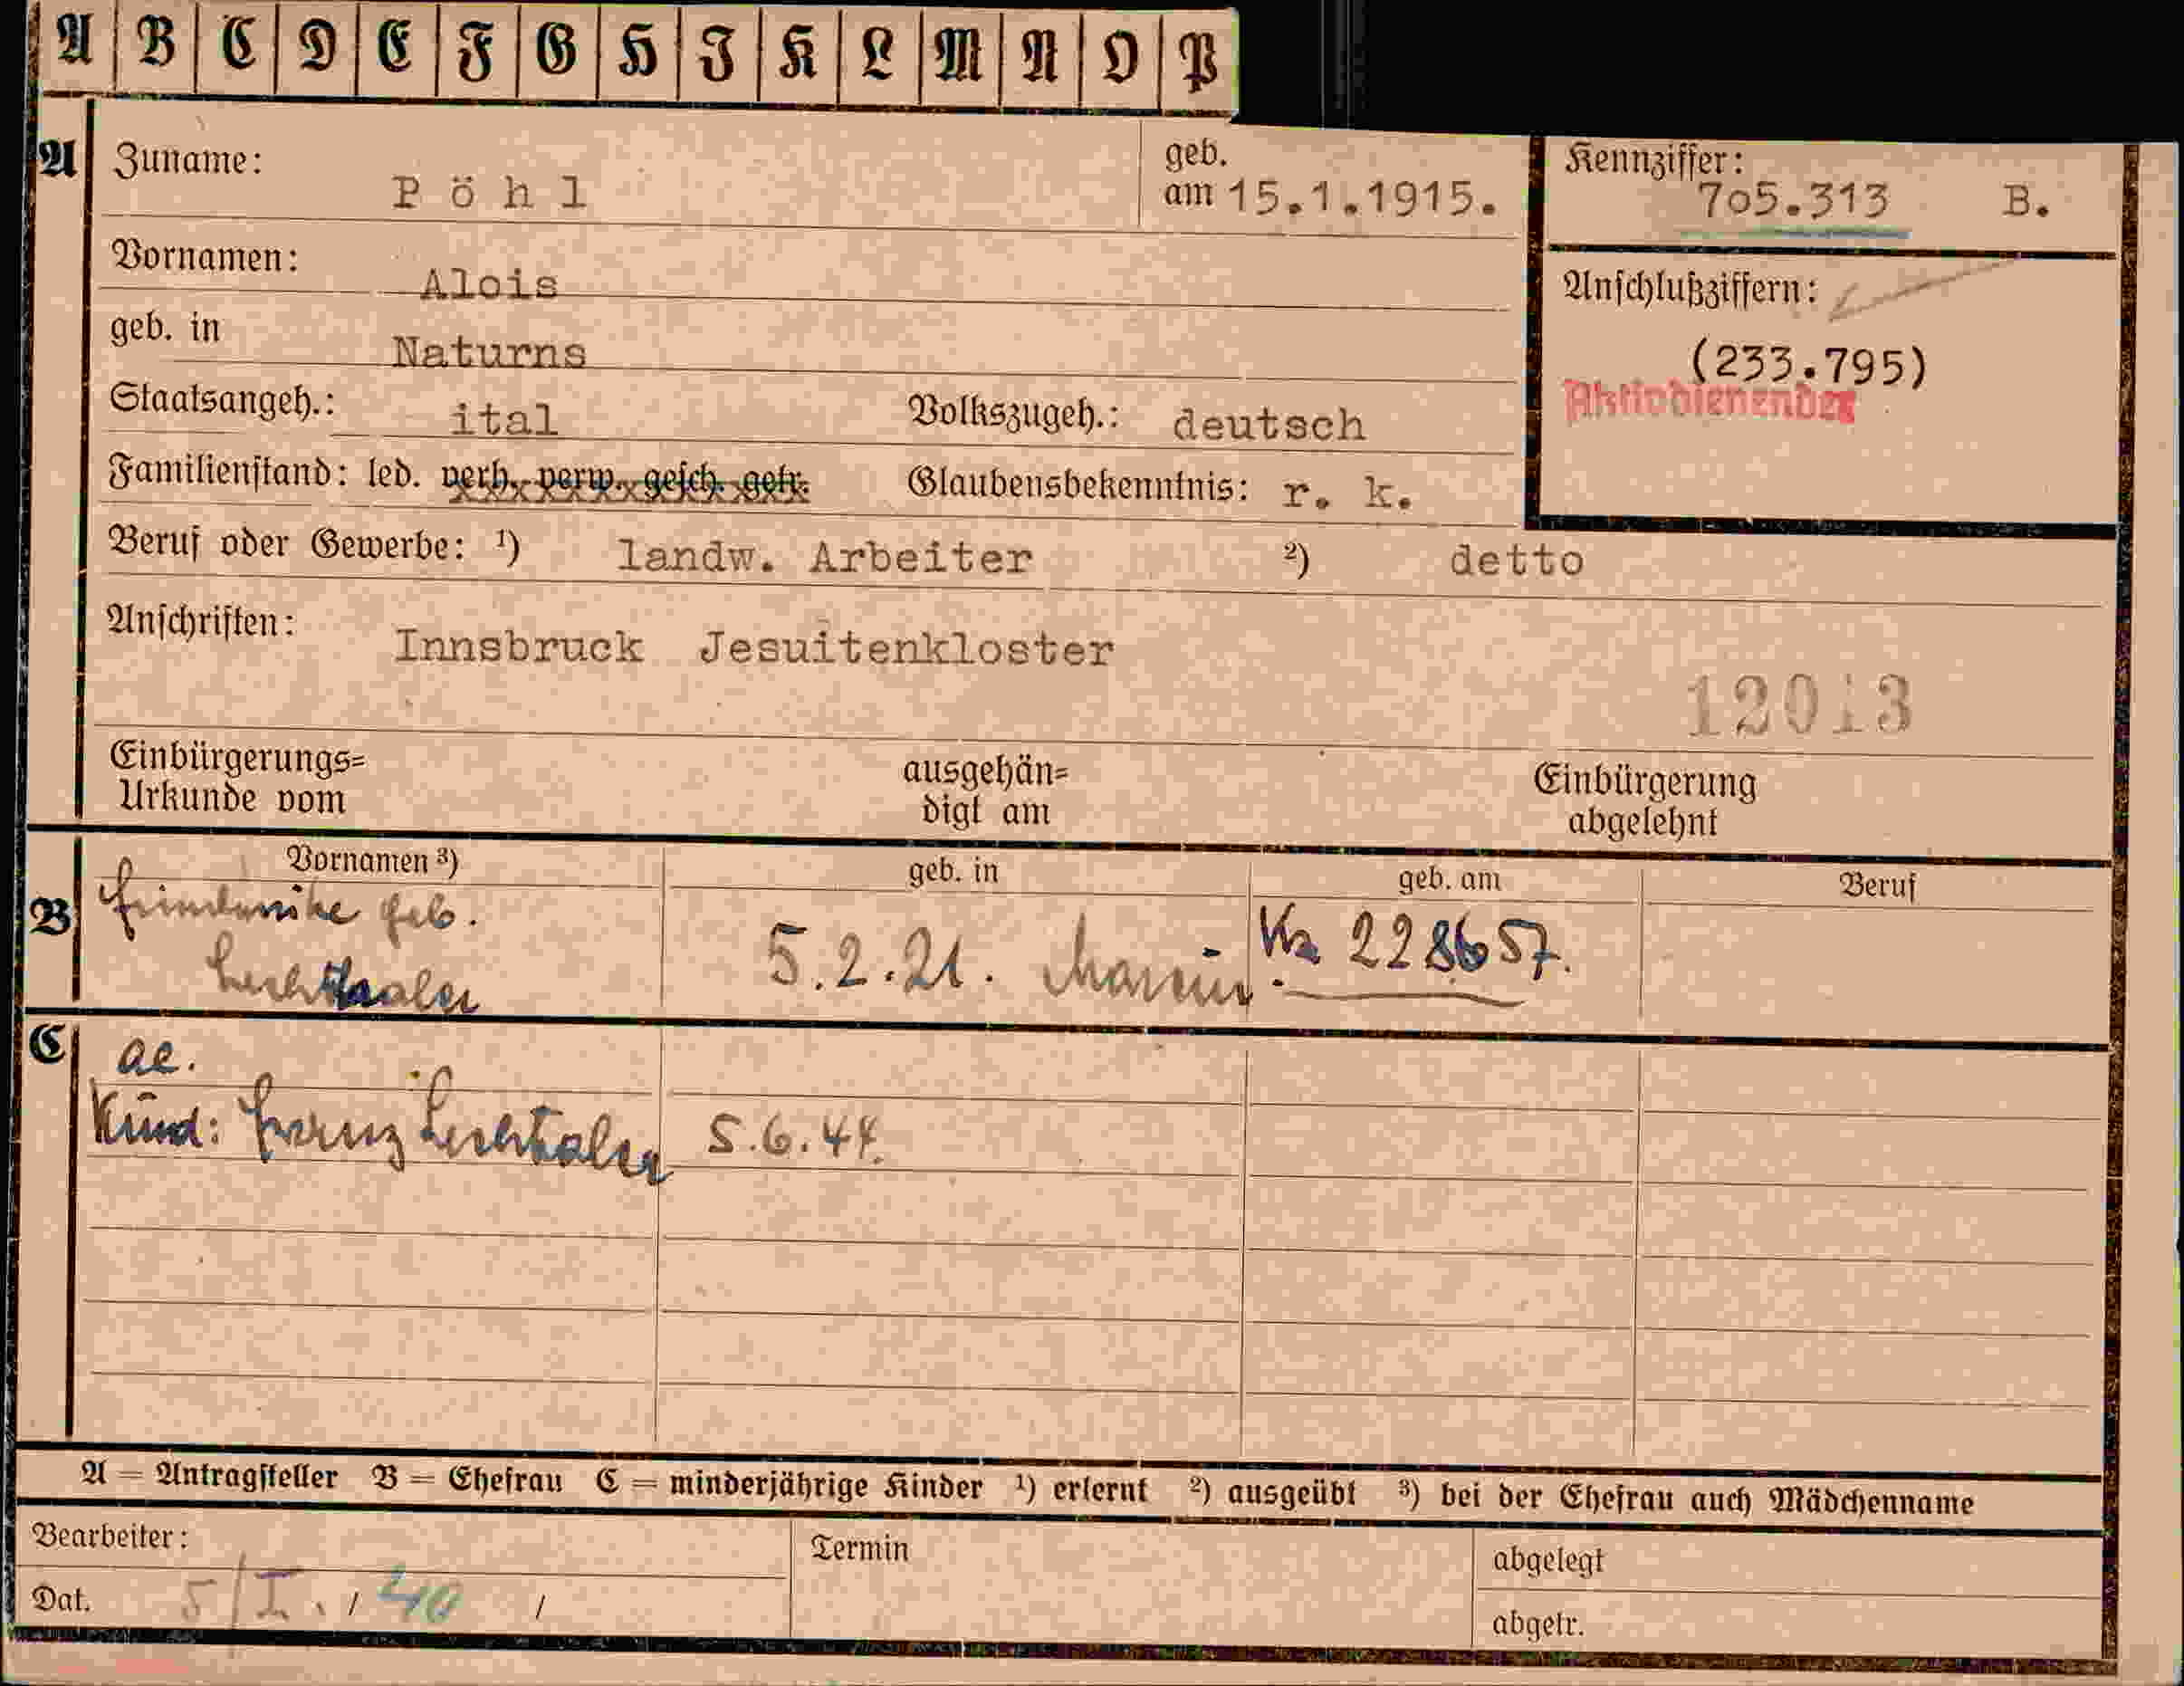 A B C D E F G H I K L M N O P
A Zuname: Pöhl geb. am 15.1.1915. Kennziffer: 705.313 B.
Vornamen: Alois
Anschlußziffern:
geb. in Naturns
(233.795)
Aktivdienender
Staatsangeh.: ital Volkszugeh.: deutsch
Familienstand: led. verh. verw. gesch. getr. Glaubensbekenntnis: r. k.
Beruf oder Gewerbe: ¹) landw. Arbeiter ²) detto
Anschriften: Innsbruck Jesuitenkloster
12013
Einbürgerungs=
Urkunde vom
ausgehän=
digt am
Einbürgerung
abgelehnt
Vornamen ³) geb. in geb. am Beruf
B geb.
5.2.21. Kz 228657.
C ae.
Kind: Franz Lechthaler 5.6.44.
A = Antragsteller B = Ehefrau C = minderjährige Kinder ¹) erlernt ²) ausgeübt ³) bei der Ehefrau auch Mädchenname
Bearbeiter: Termin abgelegt
Dat. 5/I. / 40 / abgetr.